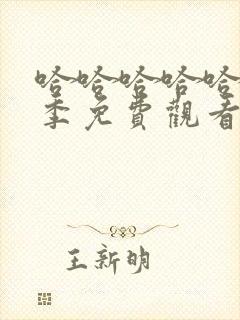 哈哈哈哈哈
季免費觀看
王新明